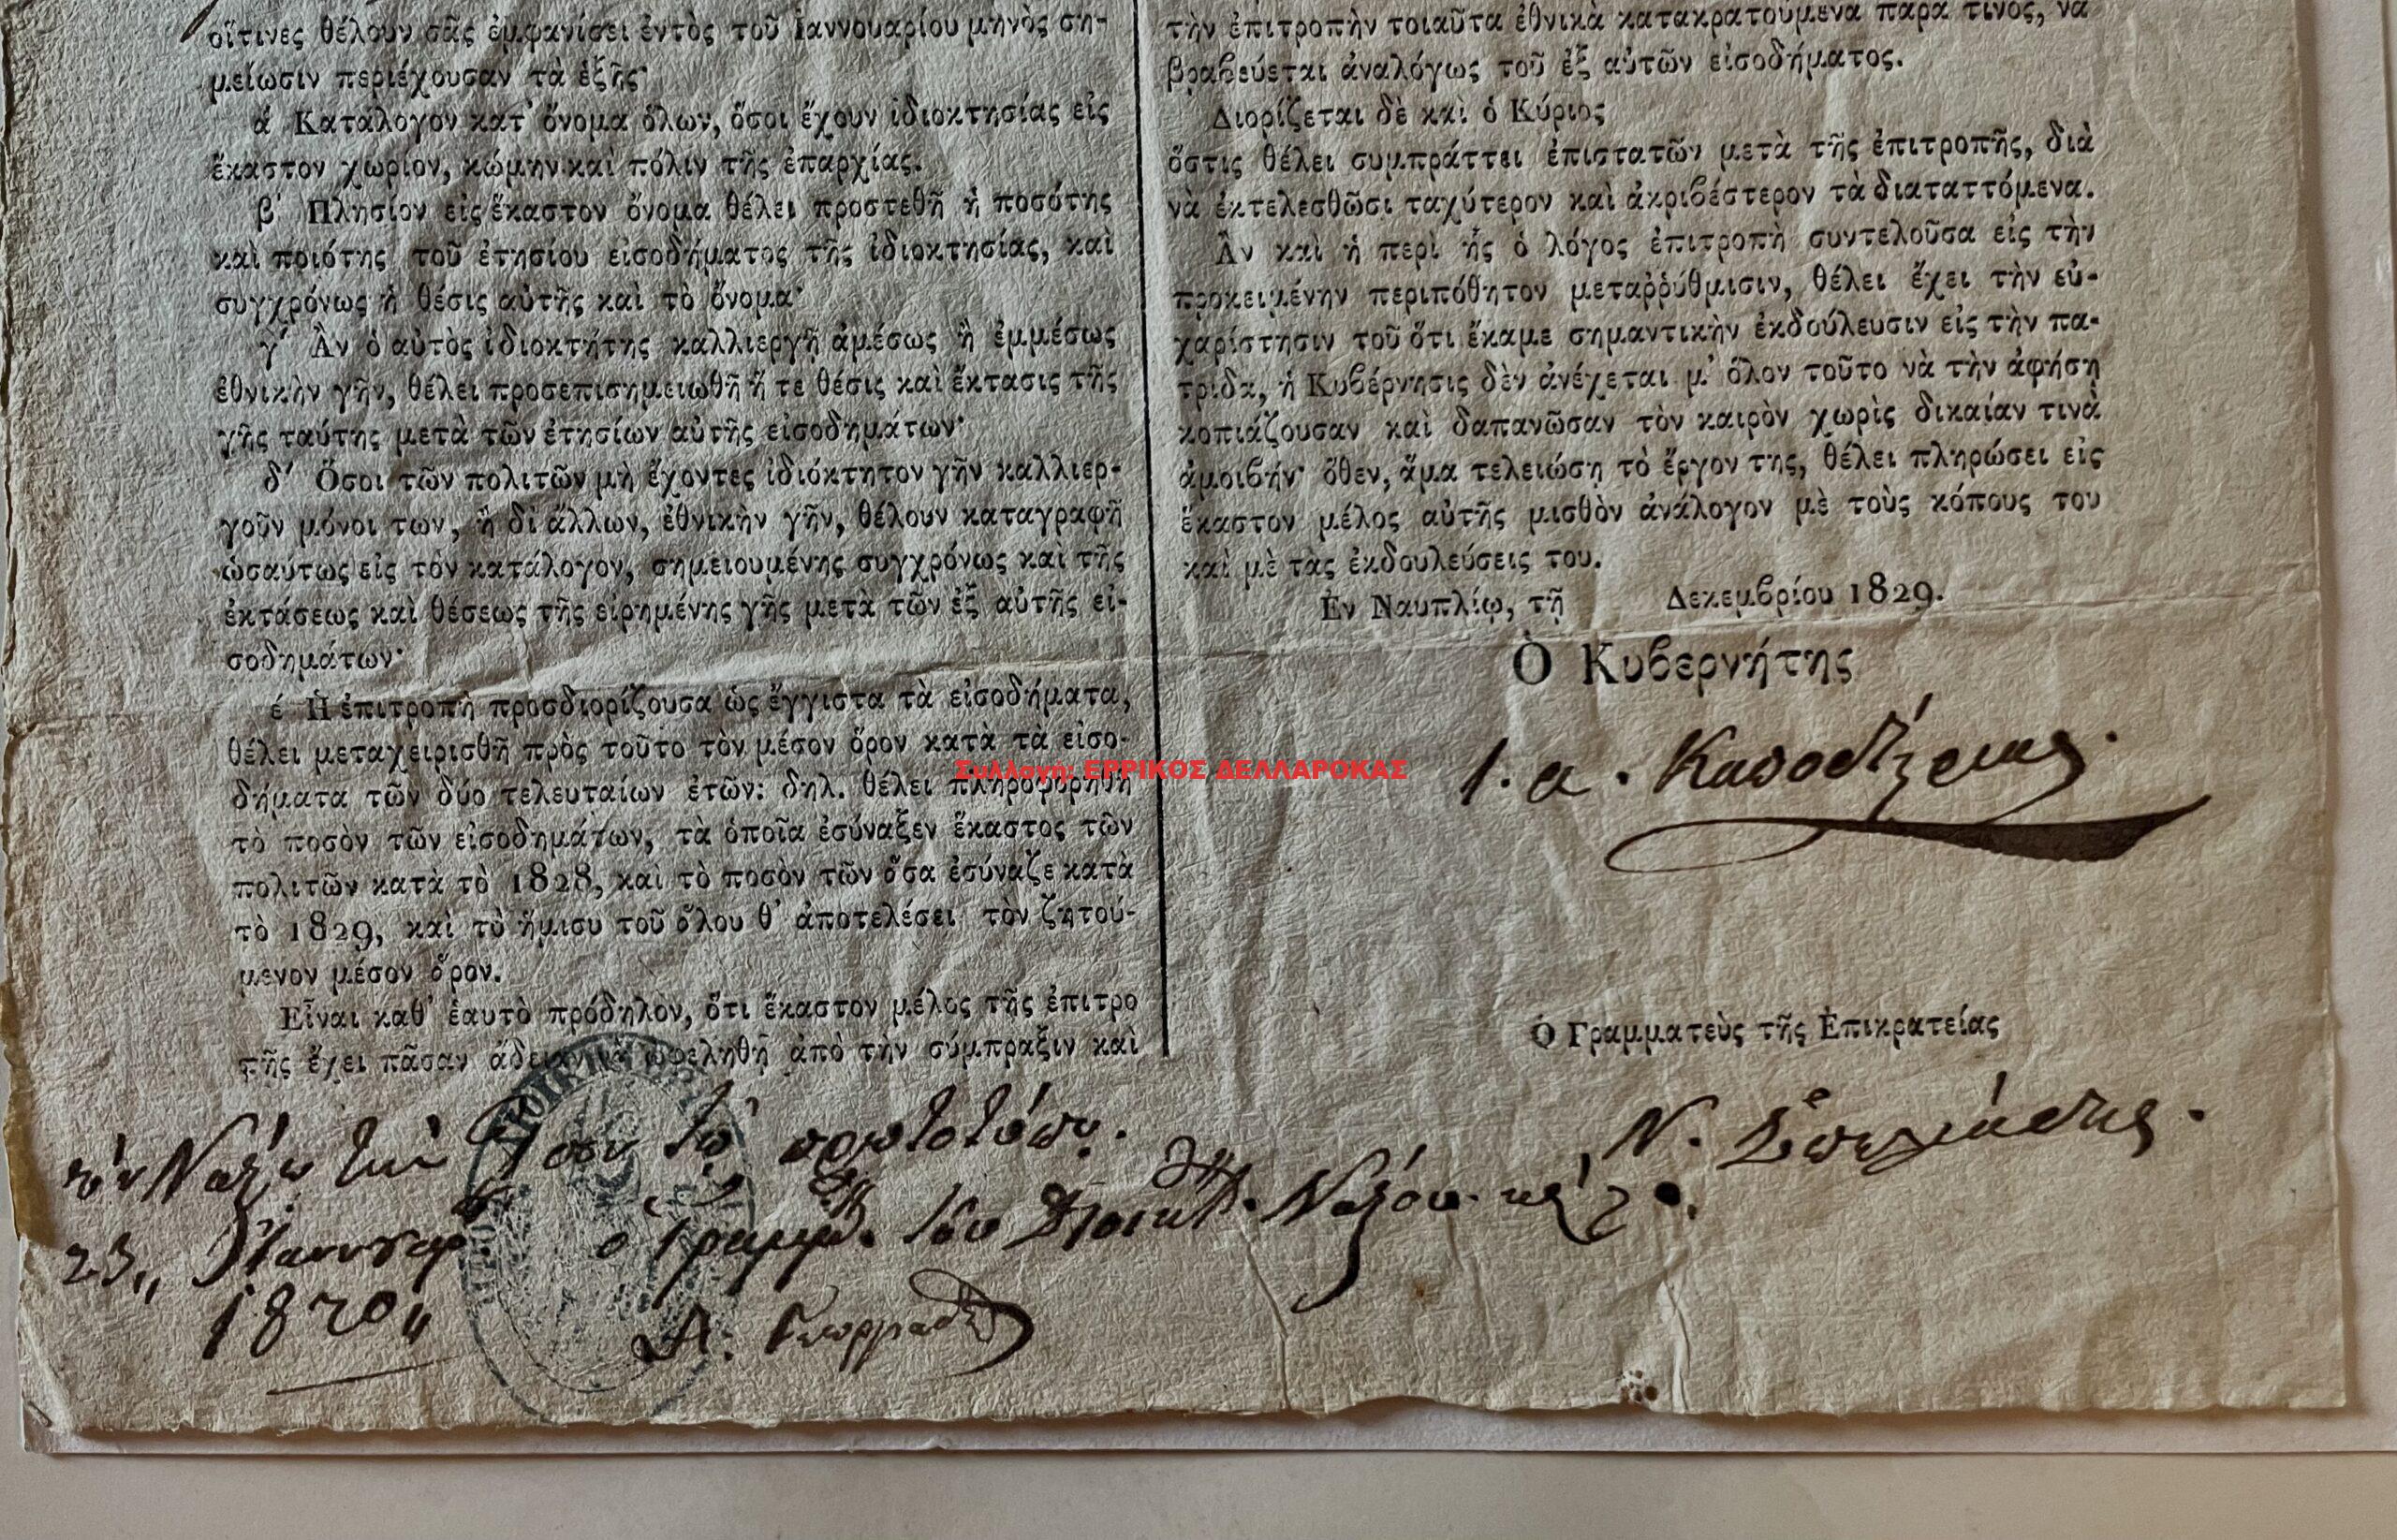 οἵτινες θέλουν σᾶς ἐμφανίσει ἐντὸς τοῦ Ἰαννουαρίου μηνὸς ση-
μείωσιν περιέχουσαν τὰ ἑξῆς·
ά Κατάλογον κατ᾽ ὄνομα ὅλων, ὅσοι ἔχουν ἰδιοκτησίας εἰς
ἕκαστον χωρίον, κώμην καὶ πόλιν τῆς ἐπαρχίας.
β΄ Πλησίον εἰς ἕκαστον ὄνομα θέλει προστεθῆ ἡ ποσότης
καὶ ποιότης τοῦ ἐτησίου εἰσοδήματος τῆς ἰδιοκτησίας, καὶ
συγχρόνως ἡ θέσις αὐτῆς καὶ τὸ ὄνομα·
γ΄ Ἂν ὁ αὐτὸς ἰδιοκτήτης καλλιεργῇ ἀμέσως ἢ ἐμμέσως
ἐθνικὴν γῆν, θέλει προσεπισημειωθῆ ἥ τε θέσις καὶ ἔκτασις τῆς
γῆς ταύτης μετὰ τῶν ἐτησίων αὐτῆς εἰσοδημάτων·
δ΄ Ὅσοι τῶν πολιτῶν μὴ ἔχοντες ἰδιόκτητον γῆν καλλιερ-
γοῦν μόνοι των, ἢ δι ἄλλων, ἐθνικὴν γῆν, θέλουν καταγραφῆ
ὡσαύτως εἰς τὸν κατάλογον, σημειουμένης συγχρόνως καὶ τῆς
ἐκτάσεως καὶ θέσεως τῆς εἰρημένης γῆς μετὰ τῶν ἐξ αὐτῆς εἰ-
σοδημάτων·
έ Ἡ ἐπιτροπὴ προσδιορίζουσα ὡς ἔγγιστα τὰ εἰσοδήματα,
θέλει μεταχειρισθῆ πρὸς τοῦτο τὸν μέσον ὅρον κατὰ τὰ εἰσο-
δήματα τῶν δύο τελευταίων ἐτῶν: δηλ. θέλει πληροφορηθῆ
τὸ ποσὸν τῶν εἰσοδημάτων, τὰ ὁποῖα ἐσύναξεν ἕκαστος τῶν
πολιτῶν κατὰ τὸ 1828, καὶ τὸ ποσὸν τῶν ὅσα ἐσύναξε κατὰ
τὸ 1829, καὶ τὸ ἥμισυ τοῦ ὅλου θ᾽ ἀποτελέσει τὸν ζητού-
μενον μέσον ὅρον.
Εἶναι καθ᾽ ἑαυτὸ πρόδηλον, ὅτι ἕκαστον μέλος τῆς ἐπιτρο
πῆς ἔχει πᾶσαν ἄδειαν νὰ ὠφεληθῆ ἀπὸ τὴν σύμπραξιν καὶ
τὴν ἐπιτροπὴν τοιαῦτα ἐθνικὰ κατακρατούμενα παρά τινος, νὰ
βραβεύεται ἀναλόγως τοῦ ἐξ αὐτῶν εἰσοδήματος.
Διορίζεται δὲ καὶ ὁ Κύριος
ὅστις θέλει συμπράττει ἐπιστατῶν μετὰ τῆς ἐπιτροπῆς, διὰ
νὰ ἐκτελεσθῶσι ταχύτερον καὶ ἀκριβέστερον τὰ διαταττόμενα.
Ἂν καὶ ἡ περὶ ἧς ὁ λόγος ἐπιτροπὴ συντελοῦσα εἰς τὴν
προκειμένην περιπόθητον μεταῤῥύθμισιν, θέλει ἔχει τὴν εὐ-
χαρίστησιν τοῦ ὅτι ἔκαμε σημαντικὴν ἐκδούλευσιν εἰς τὴν πα-
τρίδα, ἡ Κυβέρνησις δὲν ἀνέχεται μ᾽ ὅλον τοῦτο νὰ τὴν ἀφήσῃ
κοπιάζουσαν καὶ δαπανῶσαν τὸν καιρὸν χωρὶς δικαίαν τινὰ
ἀμοιβήν· ὅθεν, ἅμα τελειώσῃ τὸ ἔργον της, θέλει πληρώσει εἰς
ἕκαστον μέλος αὐτῆς μισθὸν ἀνάλογον μὲ τοὺς κόπους του
καὶ μὲ τὰς ἐκδουλεύσεις του.
Ἐν Ναυπλίῳ, τῇ Δεκεμβρίου 1829.
Ὁ Κυβερνήτης
Ι. α. Καποδίστριας.
Συλλογή: ΕΡΡΙΚΟΣ ΔΕΛΛΑΡΟΚΑΣ
Ὁ Γραμματεὺς τῆς Ἐπικρατείας
Ν. Σπηλιάδης.
Ἴσον τῷ πρωτοτύπῳ.
ἐν Ναξῳ τὴν
23,, Ἰαννουαρ
1830,,
ὁ Γραμμ. τοῦ Διοικητ. Νάξου